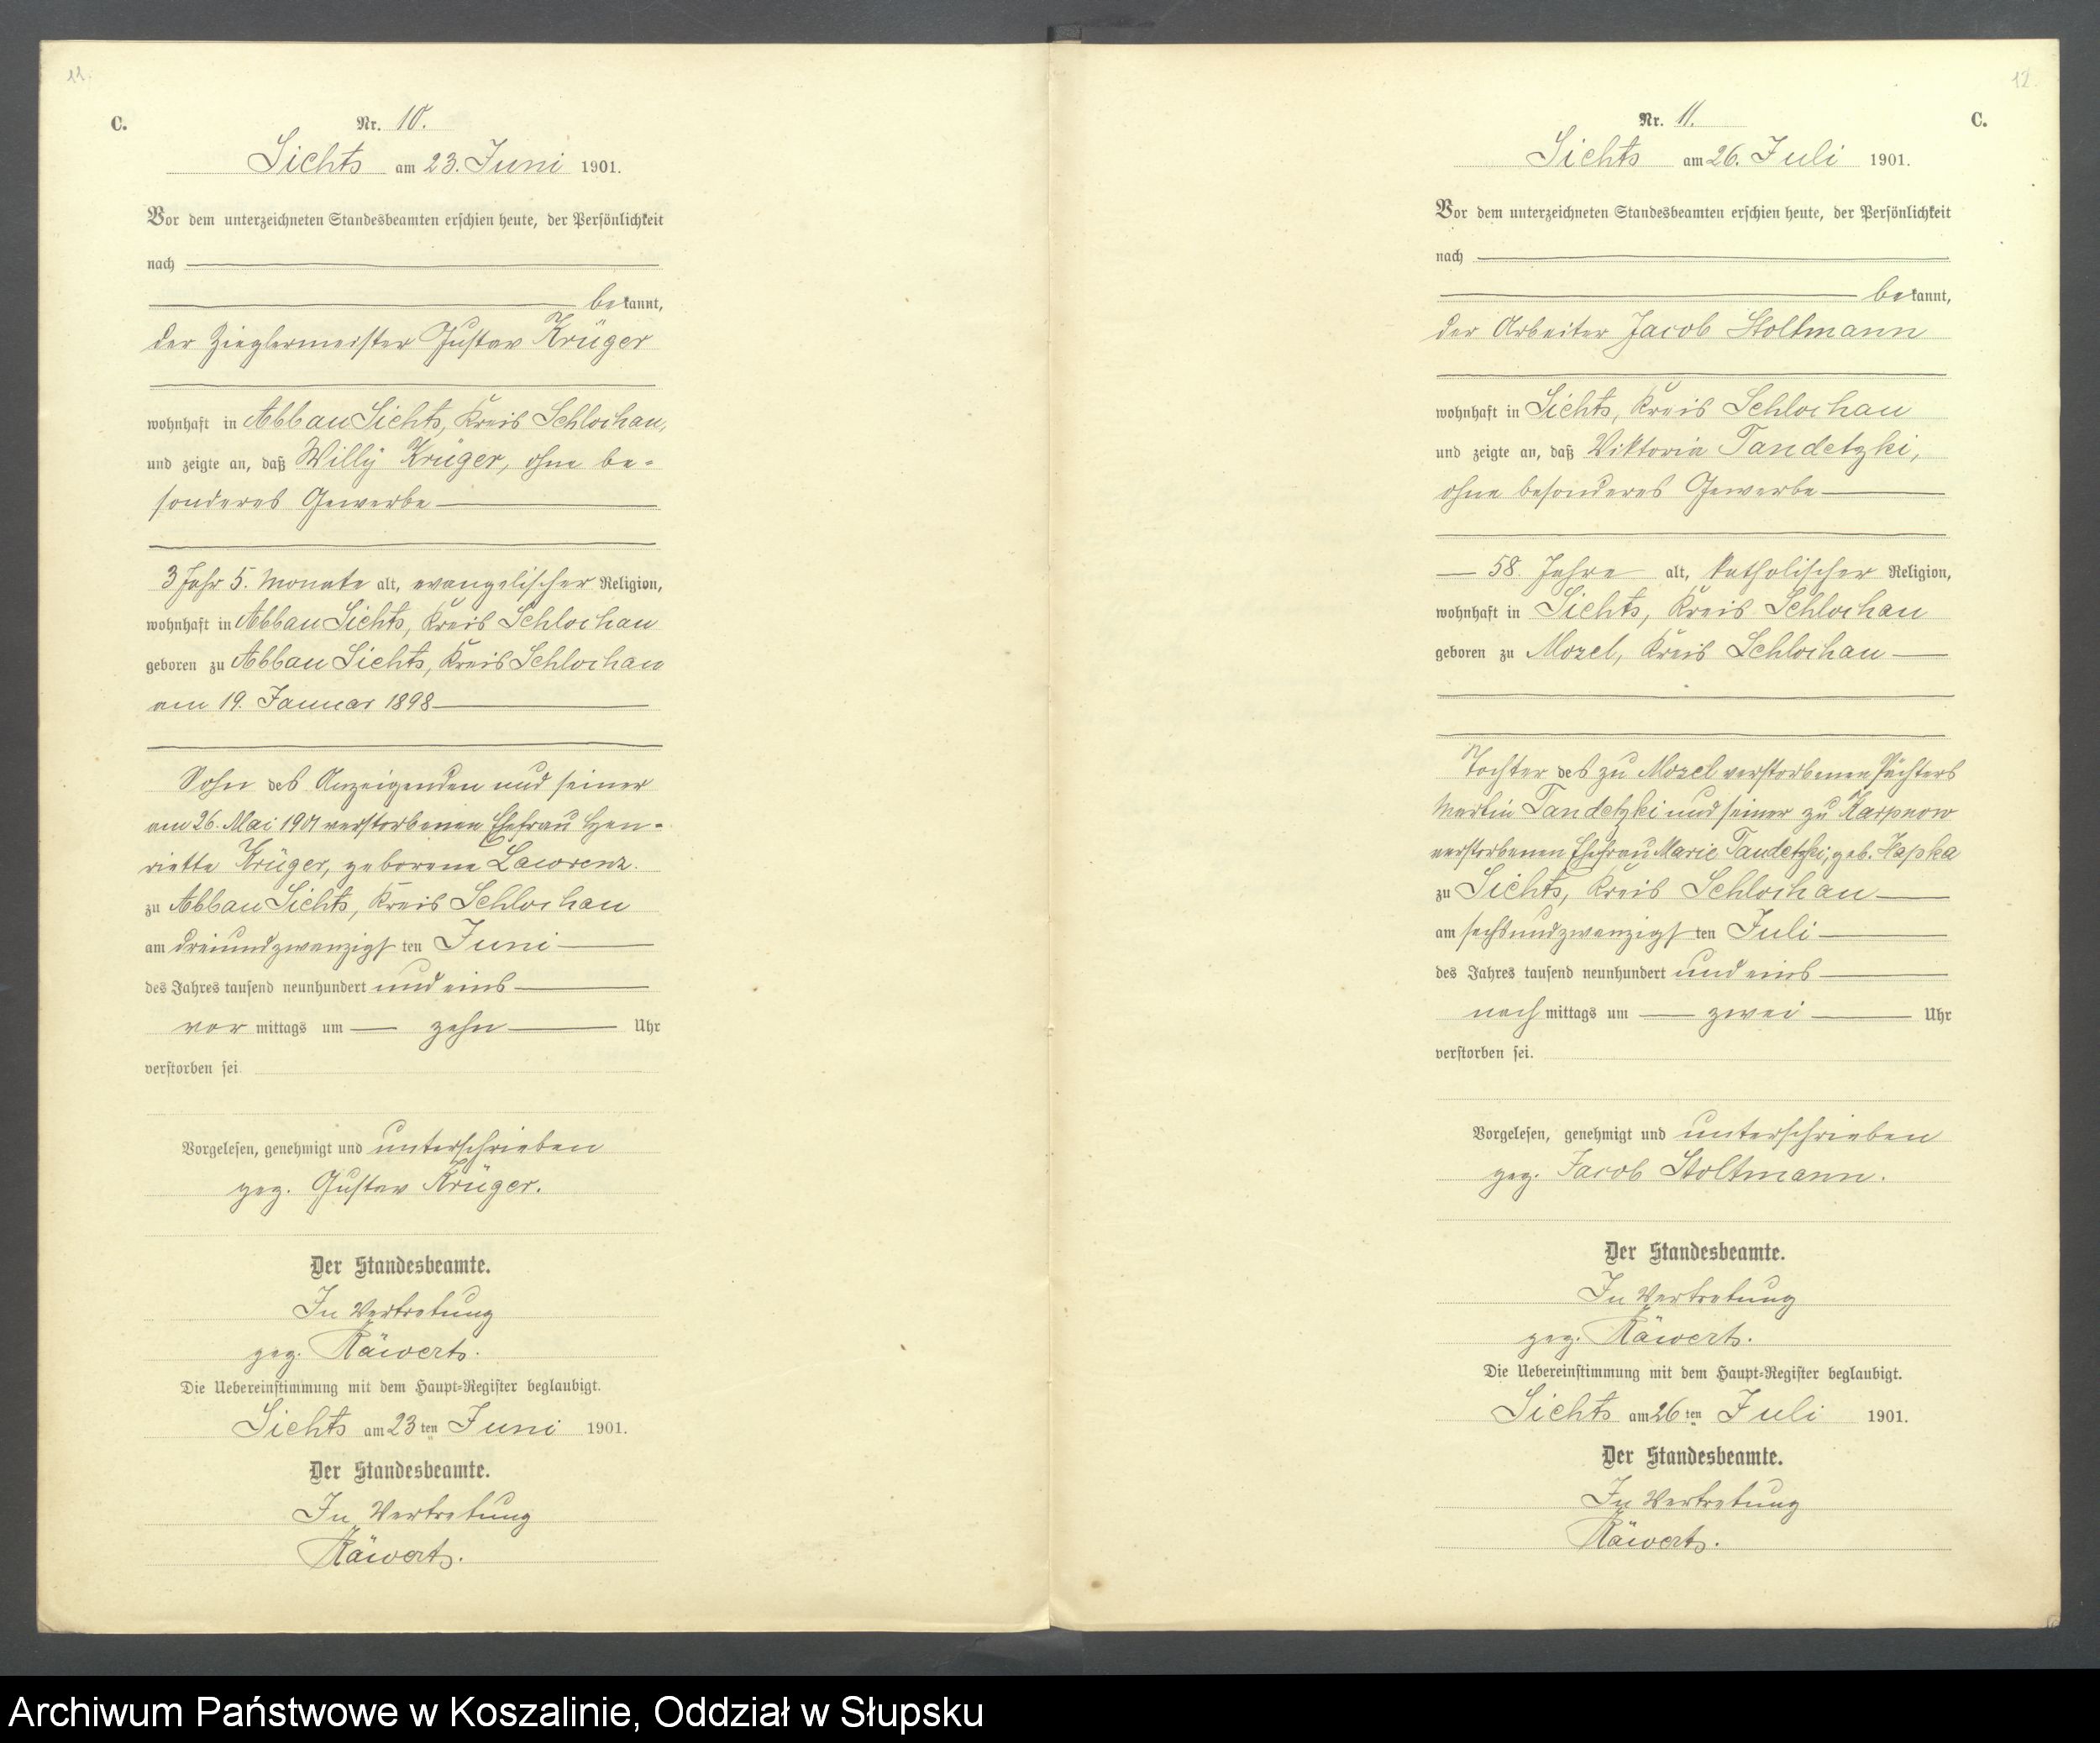 11.
C.
Nr. 10.
Lichts am 23. Juni 1901.
Vor dem unterzeichneten Standesbeamten erschien heute, der Persönlichkeit
nach
bekannt,
der Zieglermeister Gustav Krüger
wohnhaft in Abbau Sichts, Kreis Schlochau,
und zeigte an, daß Willy Krüger, ohne be-
sonderes Gewerbe
3 Jahr 5. Monate alt, evangelischer Religion,
wohnhaft in Abbau Sichts, Kreis Schlochau
geboren zu Abbau Sichts, Kreis Schlochau
am 19. Januar 1898
Sohn des Anzeigenden und seiner
am 26. Mai 1901 verstorbenen Ehefrau Hen-
riette Krüger, geborene Lawrenz.
zu Abbau Sichts, Kreis Schlochau
am dreiundzwanzigsten Juni
des Jahres tausend neunhundert und eins
vor mittags um zehn Uhr
verstorben sei.
Vorgelesen, genehmigt und unterschrieben
gez. Gustav Krüger.
Der Standesbeamte.
In Vertretung
gez. Räwerts.
Die Uebereinstimmung mit dem Haupt-Register beglaubigt.
Sichts am 23ten Juni 1901.
Der Standesbeamte.
In Vertretung
Räwerts.
12.
C.
Nr. 11.
Sichts am 26. Juli 1901.
Vor dem unterzeichneten Standesbeamten erschien heute, der Persönlichkeit
nach
bekannt,
der Arbeiter Jacob Stoltmann
wohnhaft in Sichts, Kreis Schlochau
und zeigte an, daß Viktoria Tandetzki,
ohne besonderes Gewerbe
58 Jahre alt, katholischer Religion,
wohnhaft in Sichts, Kreis Schlochau
geboren zu Mozel, Kreis Schlochau
Tochter des zu Mozel verstorbenen Pächters
Martin Tandetzki und seiner zu Karpnow
verstorbenen Ehefrau Marie Tandetzki, geb. Hapka
zu Sichts, Kreis Schlochau
am sechsundzwanzigsten Juli
des Jahres tausend neunhundert und eins
nach mittags um zwei Uhr
verstorben sei.
Vorgelesen, genehmigt und unterschrieben
gez. Jacob Stoltmann.
Der Standesbeamte.
In Vertretung
gez. Räwerts.
Die Uebereinstimmung mit dem Haupt-Register beglaubigt.
Sichts am 26ten Juli 1901.
Der Standesbeamte.
In Vertretung
Räwerts.
Archiwum Państwowe w Koszalinie, Oddział w Słupsku